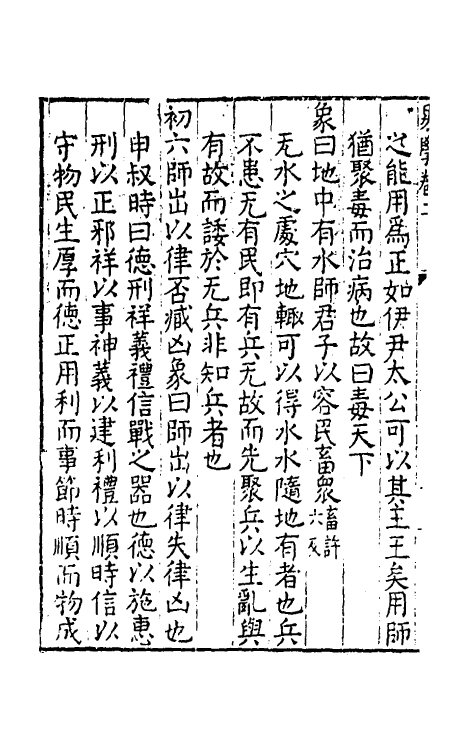 之能用爲正如伊尹太公可以其主王矣用師
猶聚毒而治病也故曰毒天下
象曰地中有水師君子以容民畜衆畜許六反
无水之處穴地輙可以得水水隨地有者也兵
不患无有民即有兵无故而先聚兵以生亂與
有故而諉於无兵非知兵者也
初六師出以律否臧凶象曰師出以律失律凶也
申叔時曰德刑祥義禮信戰之器也德以施惠
刑以正邪祥以事神義以建利禮以順時信以
守物民生厚而德正用利而事節時順而物成